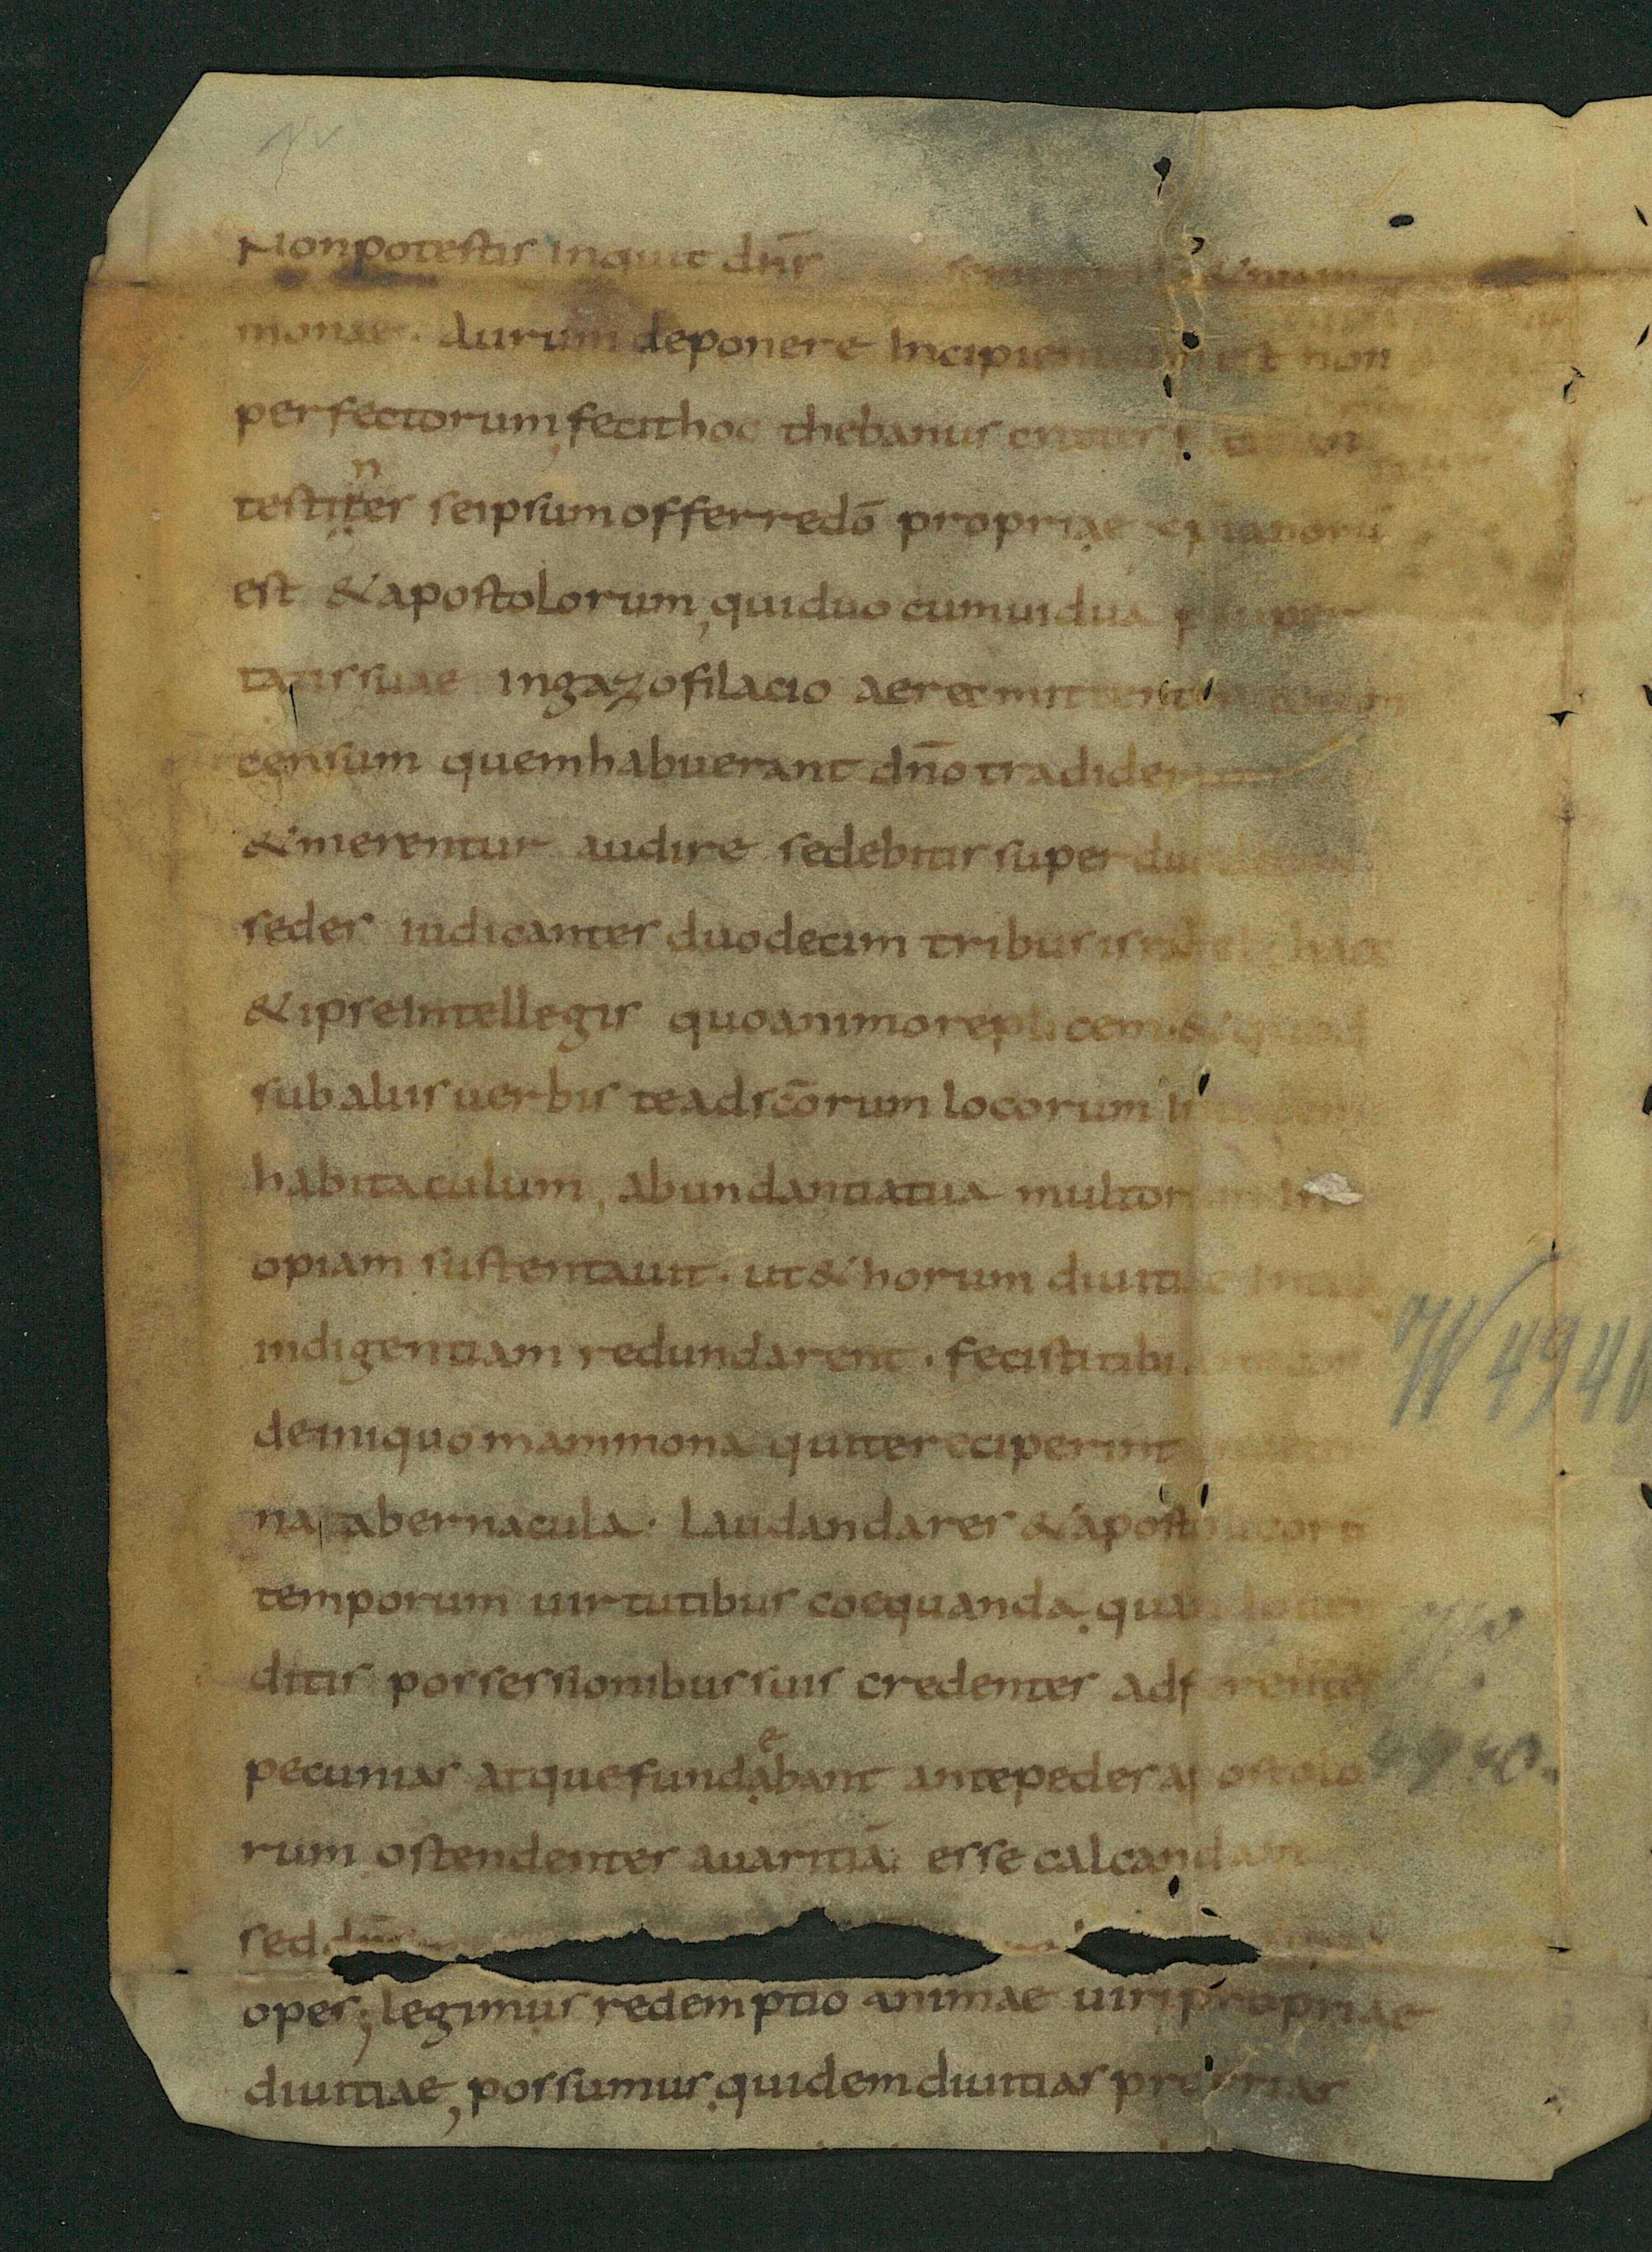 Non potestis inquit dñs
monae. aurum deponere incipientium est non
perfectorum, fecit hoc thebanus crates
testiter n seipsum offerre dō propriae xp̄ianorū
est & apostolorum, qui duo cum vidua pauper
tatis suae in gazofilacio aera mittentes totum
censum quem habuerant dño tradiderunt
& merentur audire sedebitis super duodecim
sedes iudicantes duodecim tribus israhel haec
& ipse intellegis quo animo replicem & quod
sub aliis verbis te ad scōrum locorum
habitaculum, abundantia tua multorum in
opiam sustentavit. ut & horum divitiae in tuā
indigentiam redundarent. fecisti tibi amicos
de iniquo mammona qui te reciperint
na tabernacula. laudanda res & apostolicorū
temporum virtutibus coequanda. quando ven
ditis possessionibus suis credentes adferentes
pecunias atque fundabant e ante pedes apostolo
rum ostendentes avaritiā esse calcandam
sed dñs
opes; legimus redemptio animae viri propriae
divitiae, possumus quidem divitias proprias
W 4940
4940.